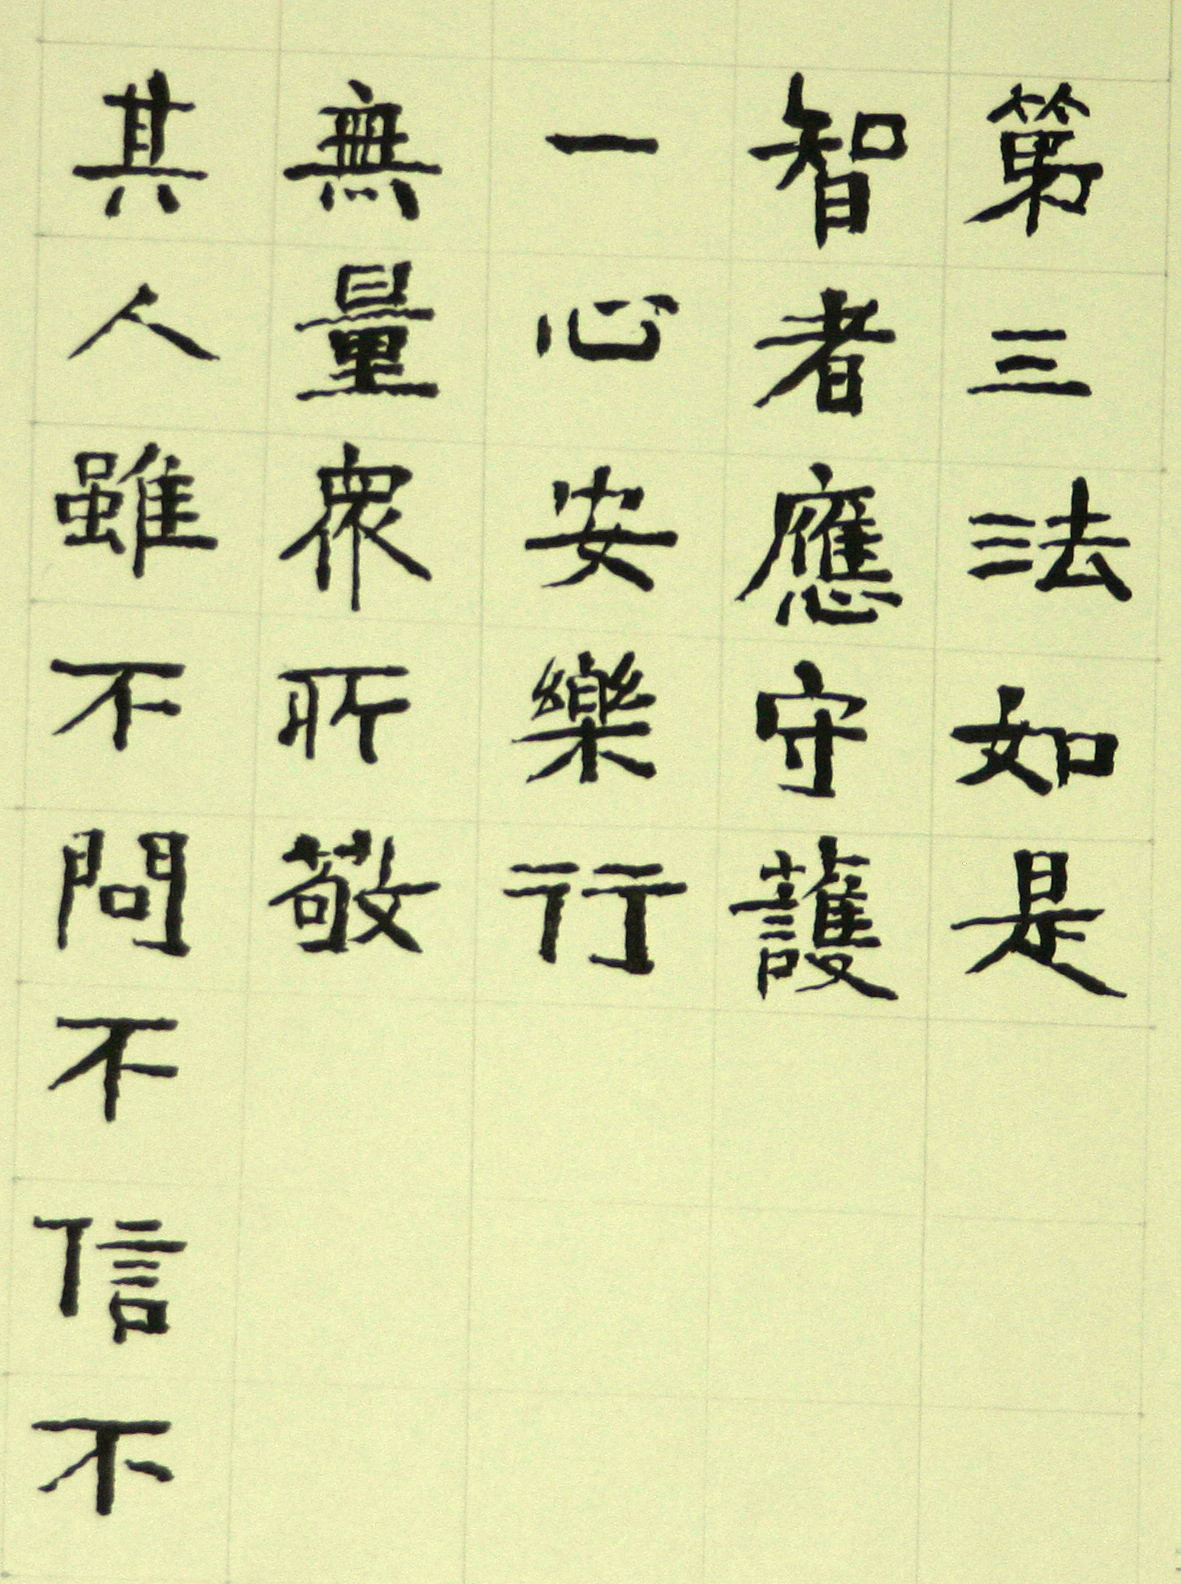 第三法如是
智者應守護
一心安樂行
無量眾所敬
其人雖不問不信不